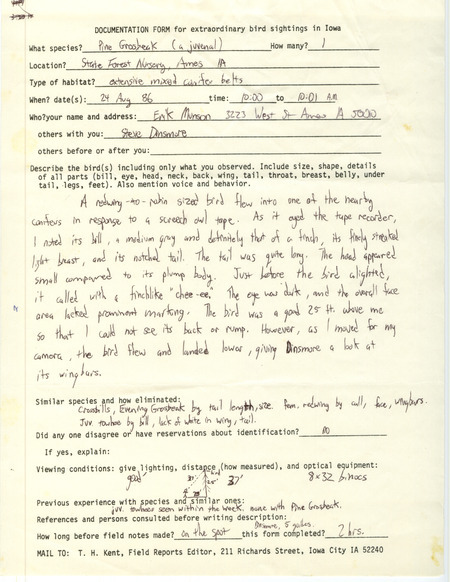 DOCUMENTATION FORM for extraordinary bird sightings in Iowa
What species? Pine Grosbeak (a juvenal) How many? 1
Location? State Forest Nursery, Ames IA
Type of habitat? extensive mixed conifer belts
When? date(s): 24 Aug 86 time: 10:00 to 10:01 AM
Who?your name and address: Erik Munson 3223 West St Ames IA 50010
others with you: Steve Dinsmore
others before or after you:
Describe the bird(s) including only what you observed. Include size, shape, details
of all parts (bill, eye, head, neck, back, wing, tail, throat, breast, belly, under
tail, legs, feet). Also mention voice and behavior.
A redwing-to-robin sized bird flew into one of the nearby
conifers in response to a screech owl tape. As it eyed the tape recorder,
I noted its bill, a medium gray and definitely that of a finch, its finely streaked
light breast, and its notched tail. The tail was quite long. The head appeared
small compared to its plump body. Just before the bird alighted,
it called with a finchlike "chee-ee." The eye was dark, and the overall face
area lacked prominent marking. The bird was a good 25 ft. above me
so that I could not see its back or rump. However, as I moved for my
camera, the bird flew and landed lower, giving Dinsmore a look at
its wingbars.
Similar species and how eliminated:
Crossbills, Evening Grosbeak by tail length, size. Fem. redwing by call, face, wingbars.
Juv. towhee by bill, lack of white in wing, tail.
Did any one disagree or have reservations about identification? no
If yes, explain:
Viewing conditions: give lighting, distance (how measured), and optical equipment:
good 37' bird 25' 37' 8x32 binocs
Previous experience with species and similar ones:
juv. towhees seen within the week. none with Pine Grosbeak.
References and persons consulted before writing description:
Dinsmore, 5 guides.
How long before field notes made? on the spot this form completed? 2 hrs.
MAIL TO: T. H. Kent, Field Reports Editor, 211 Richards Street, Iowa City IA 52240